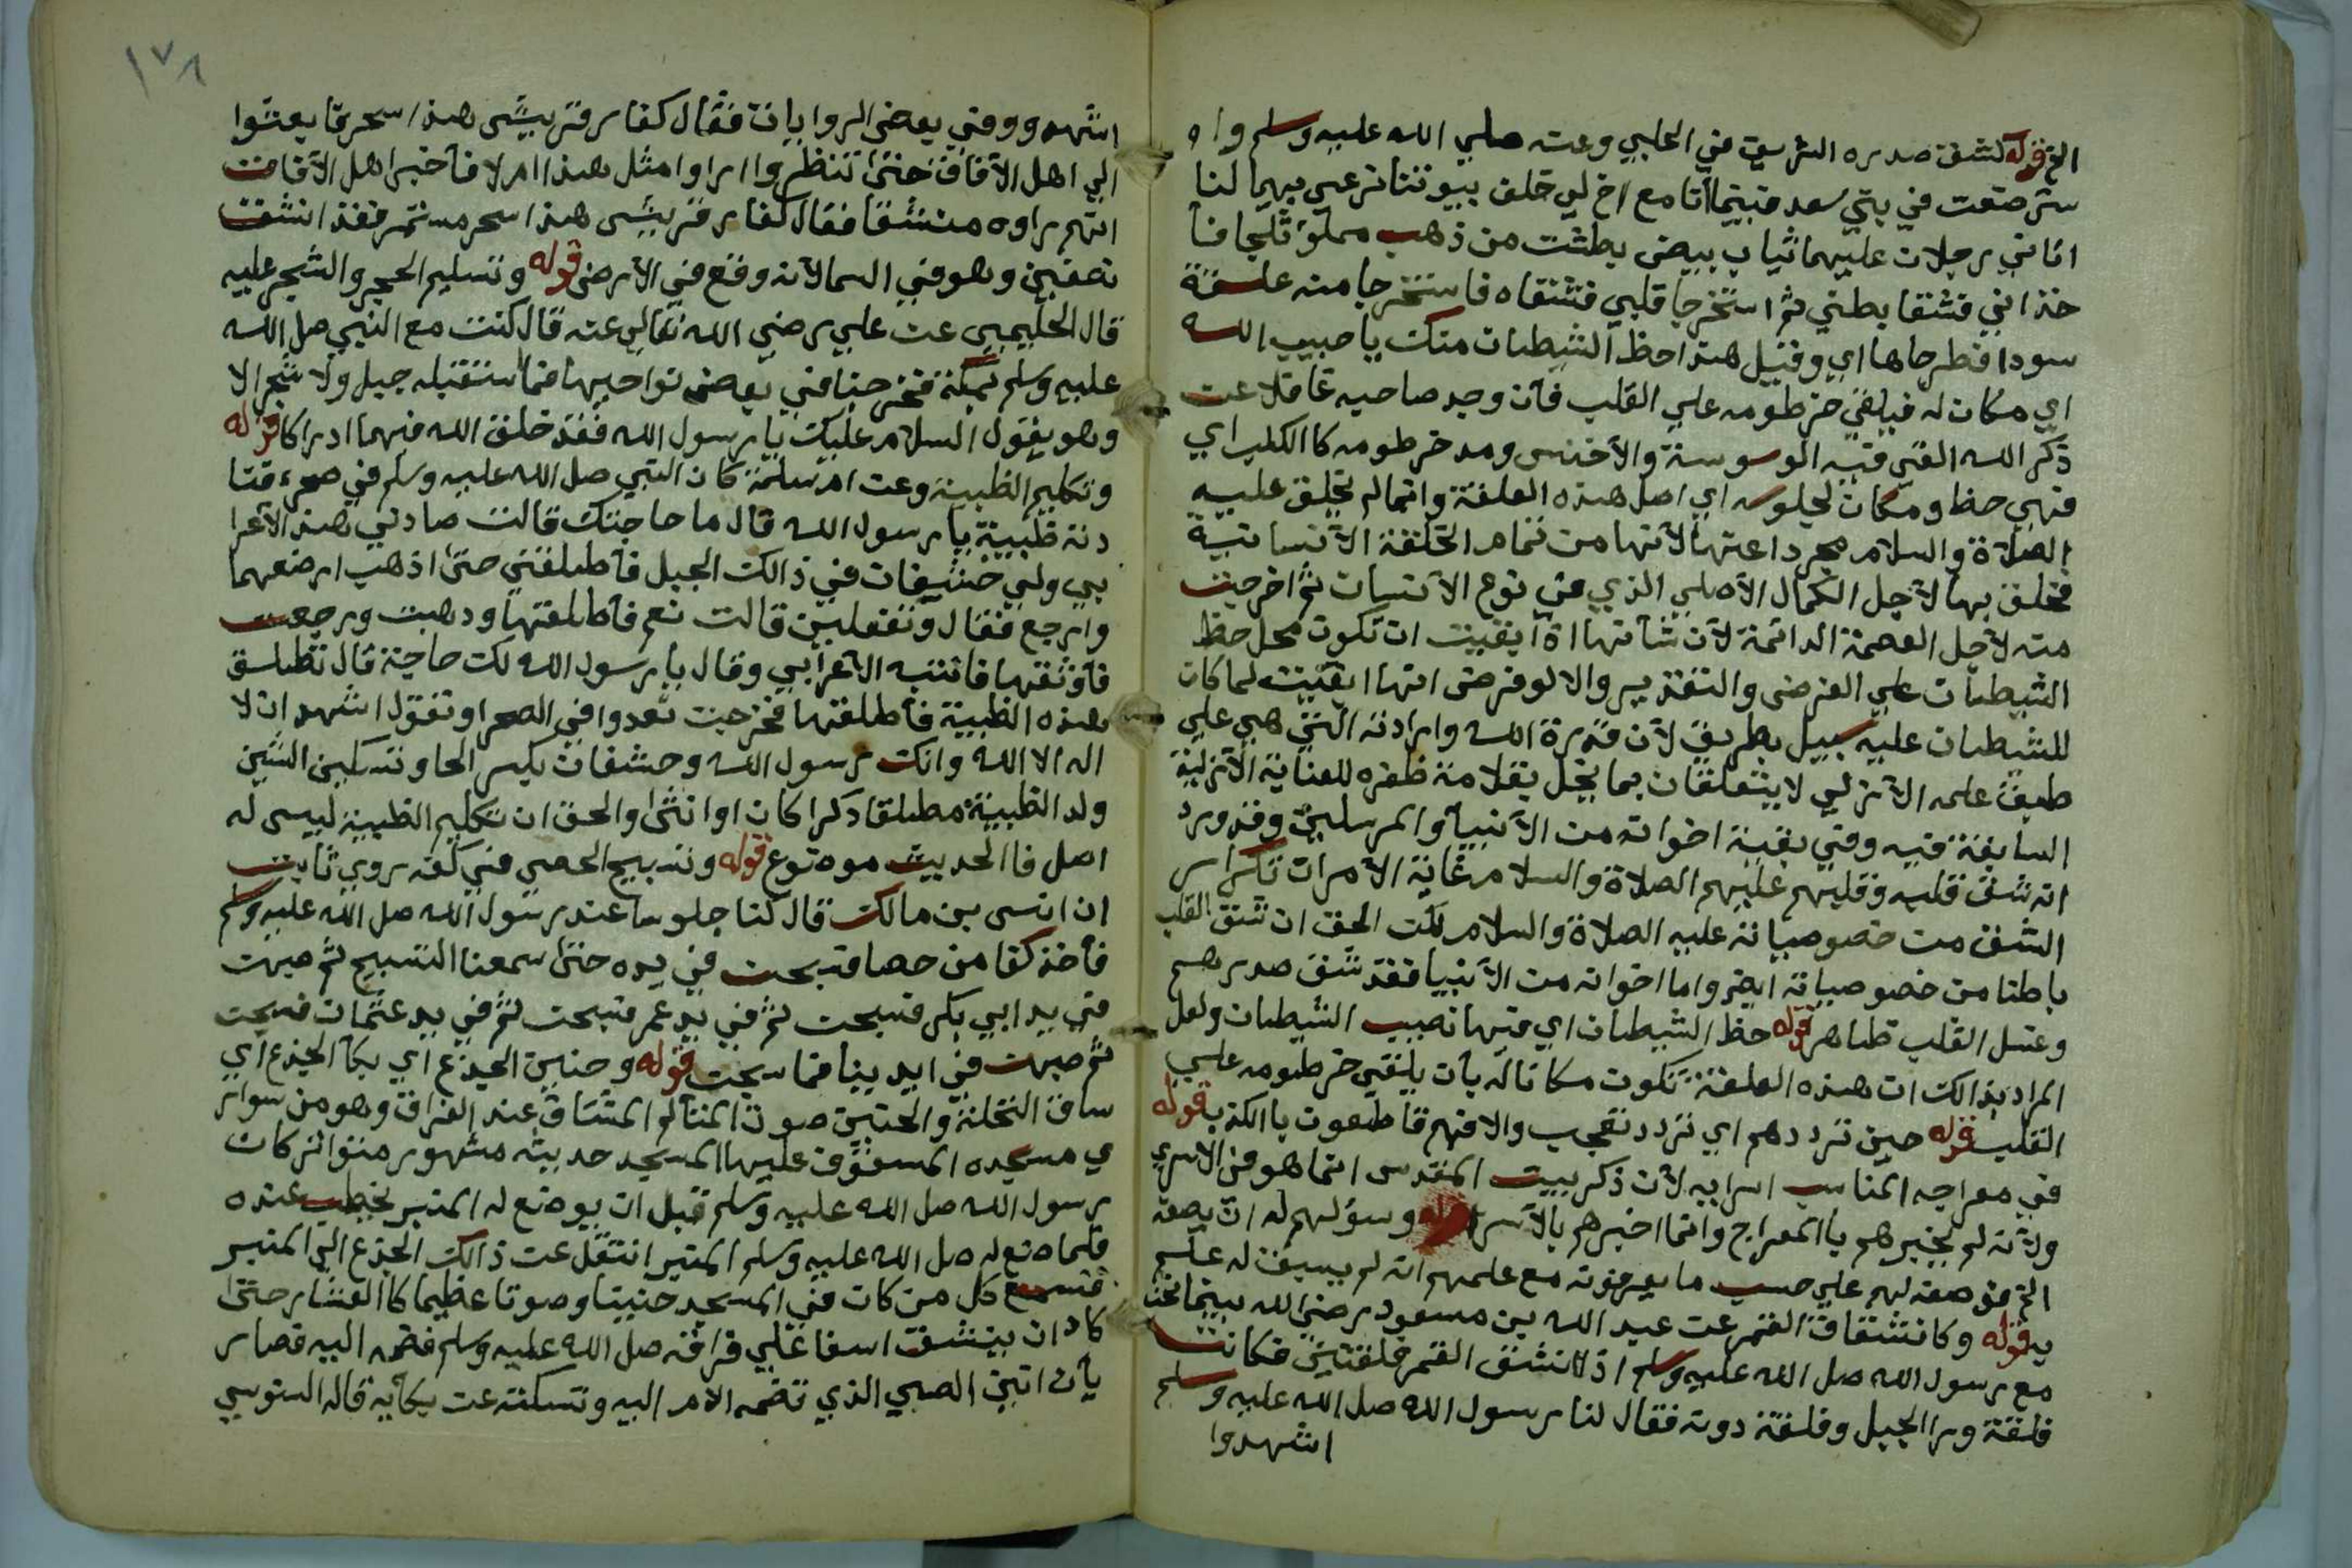 الخ قوله كشق صدره الشريف في الحلبي وعنه صلي الله عليه وسلم وا ه
سترضعت في بني سعد فبينما أنا مع اخ لي خلف بيوتنا نرعي بهما لنا
اتاني رجلان عليهما ثياب بيض بطشت من ذهب مملؤ ثلجا فأ
خذاني فشقا بطني ثم استخرجا قلبي فشقاه فاستخرجا منه علقة
سودا فطرحاها اي وقيل هذا حظ الشيطان منك يا حبيب الله
اي مكان له فيلقي خرطومه علي القلب فأن وجد صاحبه غافلا عن
ذكر الله القي فيه الوسوسة والأخنس ومد خرطومه كا الكلب اي
فهي حظ ومكان لجلوسه اي اصل هذه العلقة وانما لم يخلق عليه
الصلاة والسلام مجردا عنها لأنها من تمام الخلقة الأنسانية
فخلق بها لأجل الكمال الأصلي الذي في نوع الأنسان ثم اخرجت
منه لأجل العصمة الدائمة لأن شأنها اذا ابقيت ان تكون محل حظ
الشيطان علي الفرض والتقدير والا لو فرض انها ابقيت لما كان
للشيطان عليه سبيل بطريق لأن قدرة الله وارادته التي هي علي
طبق علمه الأزلي لا يتعلقان بما يخل بقلامة ظفره للعناية الأزلية
السابقة فيه وفي بقية اخوانه من الأنبيأ والمرسلين وقد ورد
انه شق قلبه وقلبهم عليهم الصلاة والسلام غاية الأمر ان تكرار
الشق من خصوصياته عليه الصلاة والسلام لكن الحق ان شق القلب
باطنا من خصوصياته ايضر واما اخوانه من الأنبيا فقد شق صدرهم
وغسل القلب ظاهر قوله حظ الشيطان اي فيها نصيب الشيطان ولعل
المراد بذالك ان هذه العلقة تكون مكانا له بأن يلقي خرطومه علي
القلب قوله حين ترددهم اي تردد تعجب والا فهم قاطعون با الكذب قوله
في معراجه المناسب اسرايه لأن ذكر بيت المقدس انما هو في الاسري
ولأنه لم يخبرهم با المعراج وانما اخبرهم بالأسرا قوله وسؤلهم له ان يصفه
الخ فوصفه لهم علي حسب ما يعرفونه مع علمهم انه لم يسبق له علم
به قوله وكانشقاق القمر عن عبد الله بن مسعود رضي الله بينما نحن
مع رسول الله صل الله عليه وسلم اذ انشق القمر فلقتين فكانت
فلقة ورا الجبل وفلقة دونه فقال لنا رسول الله صل الله عليه وسلم
اشهدوا
١٧٨
اشهد ووفي بعض الروايات فقال كفار قريش هذا سحر فابعثوا
الي اهل الأفاق حتي تنظروا اراوا مثل هذا ام لا فأخبر اهل الأفاق
انهم راوه منشقا فقال كفار قريش هذا سحر مستمر فقد انشق
نصفين وهو في السما لأنه وقع في الأرض قوله وتسليم الحجر والشجر عليه
قال الحليمي عن علي رضي الله تعالي عنه قال كنت مع النبي صل الله
عليه وسلم بمكة فخرجنا في بعض نواحيها فما استقبله جبل ولا شجر الا
وهو يقول السلام عليك يا رسول الله فقد خلق الله فيهما ادراكا قوله
وتكليم الظبية وعن ام سلمة كان النبي صل الله عليه وسلم في صحرء فنا
دته ظبية يا رسول الله قال ما حاجتك قالت صادني هذا الأعرا
بي ولي خشيفان في ذالك الجبل فأطلقني حتي اذهب ارضعهما
وارجع فقال وتفعلين قالت نعم فأطلقها وذهبت ورجعت
فأوثقها فانتبه الأعرابي وقال يا رسول الله لك حاجة قال تطلق
هذه الظبية فأطلقها فخرجت تعدوا في الصحرا وتقول اشهد ان لا
اله الا الله وانك رسول الله وحشفان بكسر الحا وتسكين الشين
ولد الظبية مطلقا ذكرا كان او انثي والحق ان تكليم الظبية ليس له
اصل فا الحديث موضوع قوله وتسبيح الحصي في كفه روي ثابت
ان انس بن مالك قال كنا جلوسا عند رسول الله صل الله عليه وسلم
فأخذ كفا من حصا فسبحت في يده حتي سمعنا التسبيح ثم صبهن
في يد ابي بكر فسبحت ثم في يد عمر فسبحت ثم في يد عثمان فسبحت
ثم صبهن في ايدينا فما سبحت قوله وحنين الجذع اي بكأ الجذع اي
ساق النخلة والحنين صوت المتألم المشتاق عند الفراق وهو من سوار
ي مسجده المسقوف عليها المسجد حديثه مشهور متواتر كان
رسول الله صل الله عليه وسلم قبل ان يوضع له المنبر يخطب عنده
فلما صنع له صل الله عليه وسلم المنبر انتقل عن ذالك الجذع الي المنبر
فسمع كل من كان في المسجد حنينا وصوتا عظيما كا العشار حتي
كاد ان ينشق اسفا علي فراقه صل الله عليه وسلم فضمه اليه فصار
يأن انين الصبي الذي تضمه الام اليه وتسكته عن بكآيه قاله السنوسي